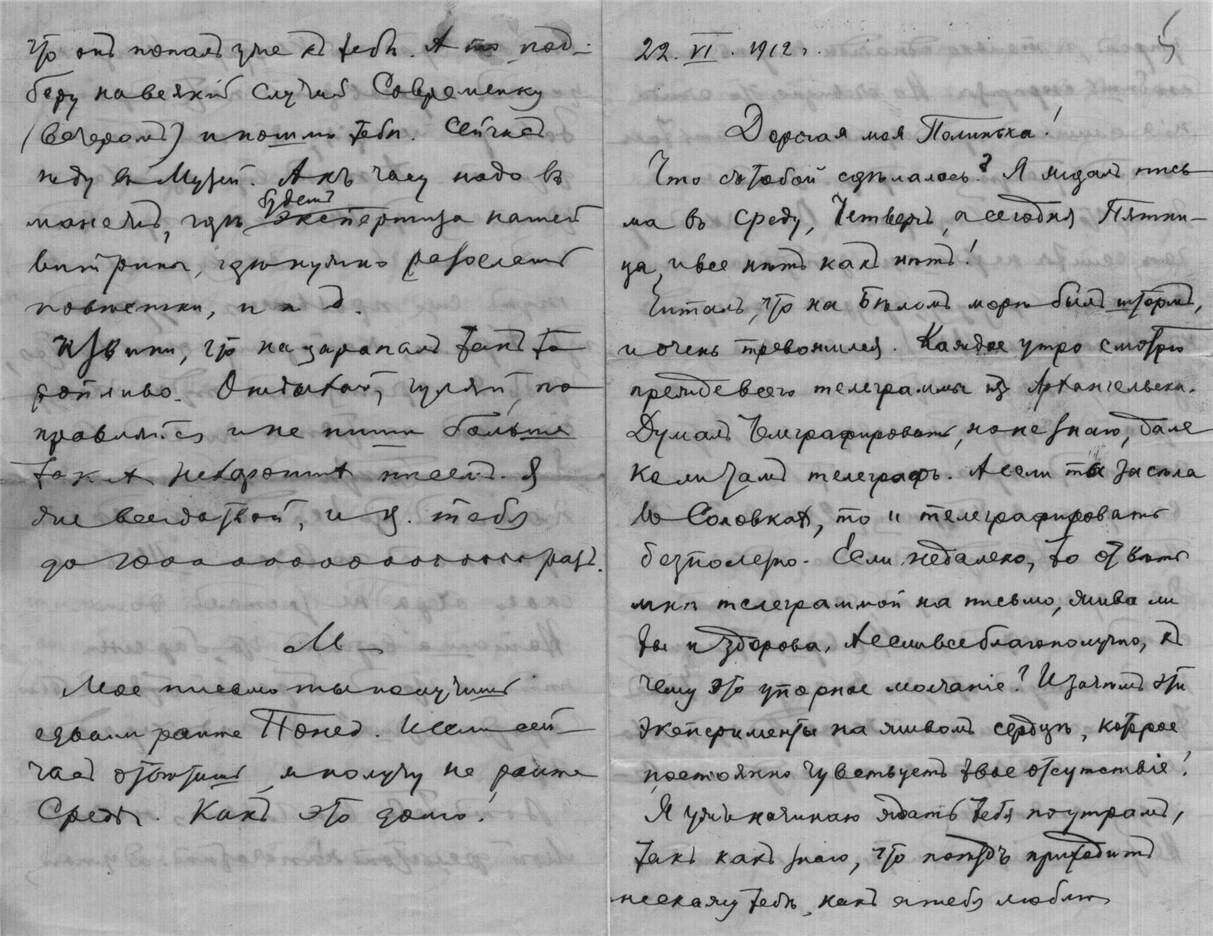 22. VI. 1912 г.
5
Дорогая моя Полинька!
Что съ тобой сдѣлалось? Я ждалъ пись
ма въ среду, Четвергъ, а сегодня Пятни-
ца, и все нѣтъ какъ нѣтъ!
Читалъ, что на Бѣломъ морѣ былъ штормъ,
и очень тревожился. Каждое утро смотрю
прежде всего телеграммы из Архангельска.
Думалъ телеграфировать, но не знаю, дале
ко ли тамъ телеграфъ. А если ты засѣла
въ Соловкахъ, то и телеграфировать
безполезно. Если недалеко, то отвѣть
мнѣ телеграммой на письмо, жива ли
ты и здорова. А если все благополучно, къ
чему это упорное молчаніе? И зачѣмъ эти
эксперименты на живомъ сердцѣ, которое
постоянно чувствуетъ твое отсутствіе!
Я ужъ начинаю ждать тебя по утрамъ,
такъ какъ знаю, что поѣздъ приходитъ
и скажу тебѣ, какъ я тебя люблю
что онъ попалъ уже къ тебѣ. А то под-
беру на всякій случай Современку
(вечеромъ) и пошлю тебѣ. Сейчасъ
иду въ Музей. А къ часу надо въ
манежъ, гдѣ будетъ экспертиза нашей
витрины, гдѣ нужно разослать
повѣстки, и т. д.
Извини, что нацарапалъ такъ то
ропливо. Отдыхай, гуляй, по
правляйся и не пиши больше
такихъ нехорошихъ писемъ. Я
же всегда твой, и ц. тебя
до 100000000000000 разъ.
М
Мое письмо ты получишь
едва ли ранѣе Понед. И если сей-
часъ отвѣтишь, я получу не ранѣе
Среды. Какъ это долго!